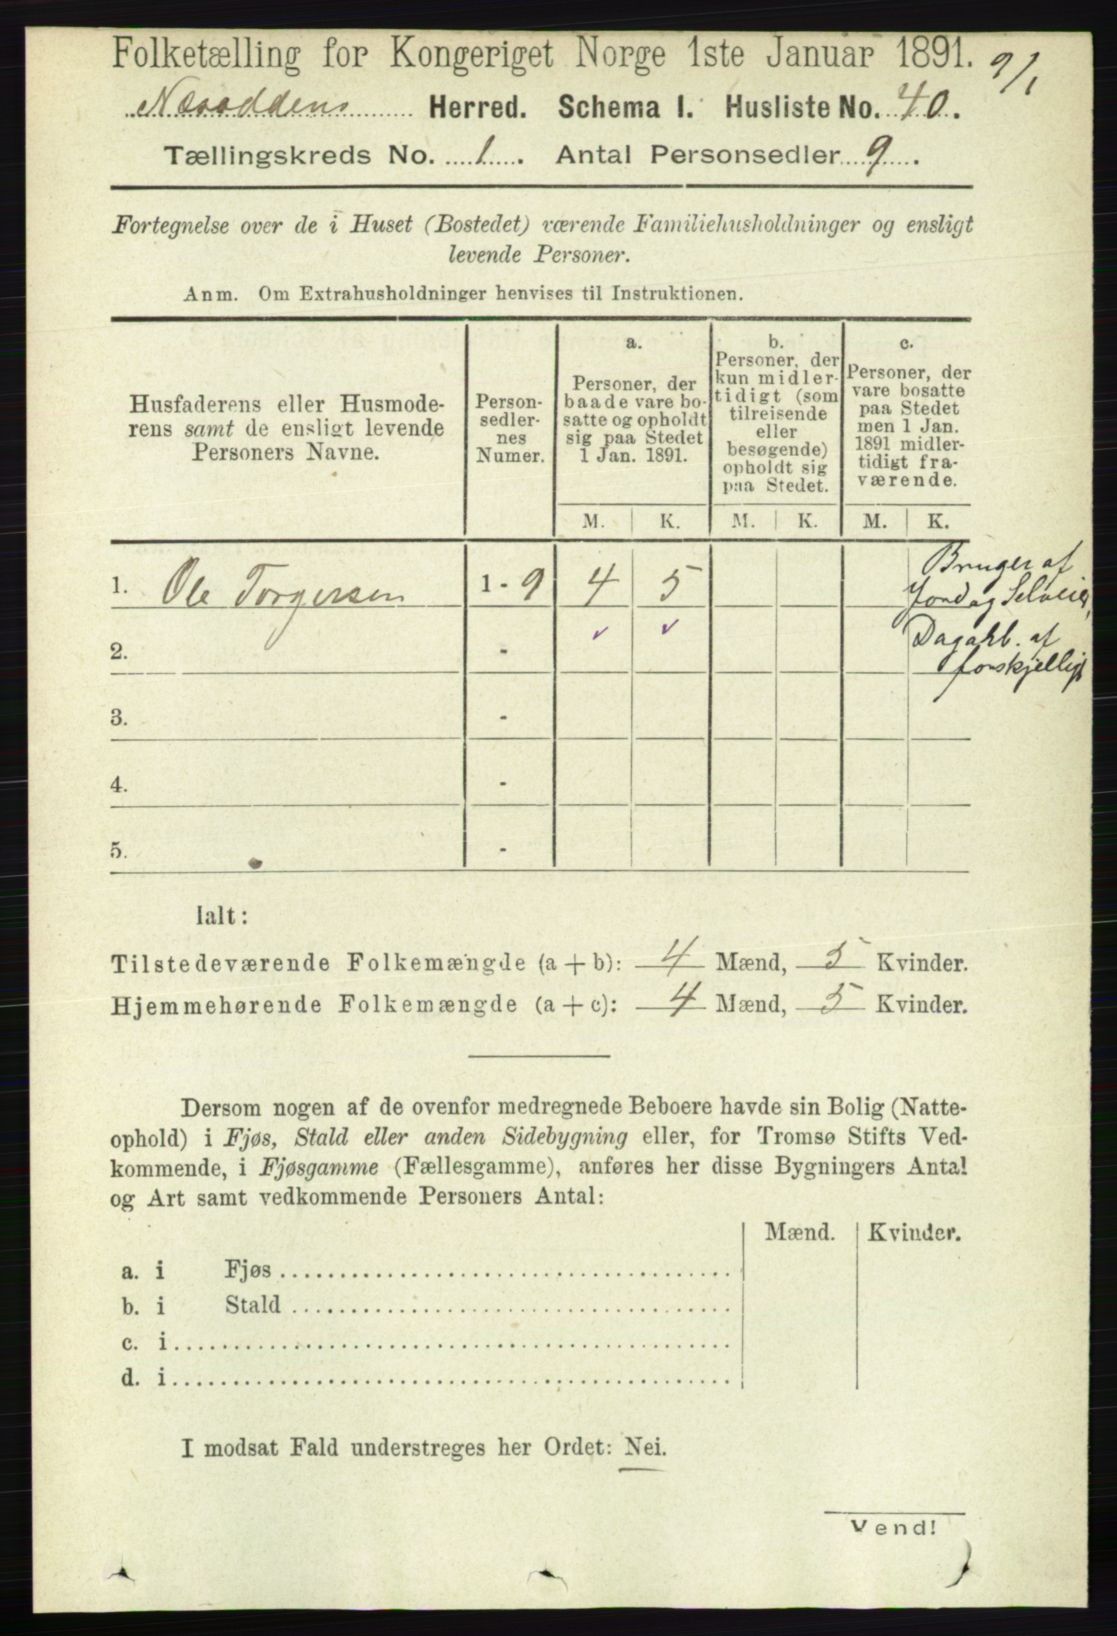 Folketælling for Kongeriget Norge 1ste Januar 1891.
9/1
Næsoddens Herred. Schema I. Husliste No. 40.
Tællingskreds No. 1. Antal Personsedler 9.
Fortegnelse over de i Huset (Bostedet) værende Familiehusholdninger og ensligt
levende Personer.
Anm. Om Extrahusholdninger henvises til Instruktionen.
Husfaderens eller Husmode-
rens samt de ensligt levende
Personers Navne.
Person-
sedler-
nes
Numer.
a.
Personer, der
baade vare bo-
satte og opholdt
sig paa Stedet
1 Jan. 1891.
b.
Personer, der
kun midler-
tidigt (som
tilreisende
eller
besøgende)
opholdt sig
paa Stedet.
c.
Personer, der
vare bosatte
paa Stedet
men 1 Jan.
1891 midler-
tidigt fra-
værende.
M. K. M. K. M. K.
1. Ole Torgersen 1 - 9 4 5
Bruger af
Jord og Selveier,
Dagarb. af
forskjelligt
2. -
3. -
4. -
5. -
Ialt:
Tilstedeværende Folkemængde (a + b): 4 Mænd, 5 Kvinder.
Hjemmehørende Folkemængde (a + c): 4 Mænd, 5 Kvinder.
Dersom nogen af de ovenfor medregnede Beboere havde sin Bolig (Natte-
ophold) i Fjøs, Stald eller anden Sidebygning eller, for Tromsø Stifts Ved-
kommende, i Fjøsgamme (Fællesgamme), anføres her disse Bygningers Antal
og Art samt vedkommende Personers Antal:
Mænd. Kvinder.
a. i Fjøs
b. i Stald
c. i
d. i
I modsat Fald understreges her Ordet: Nei.
Vend!